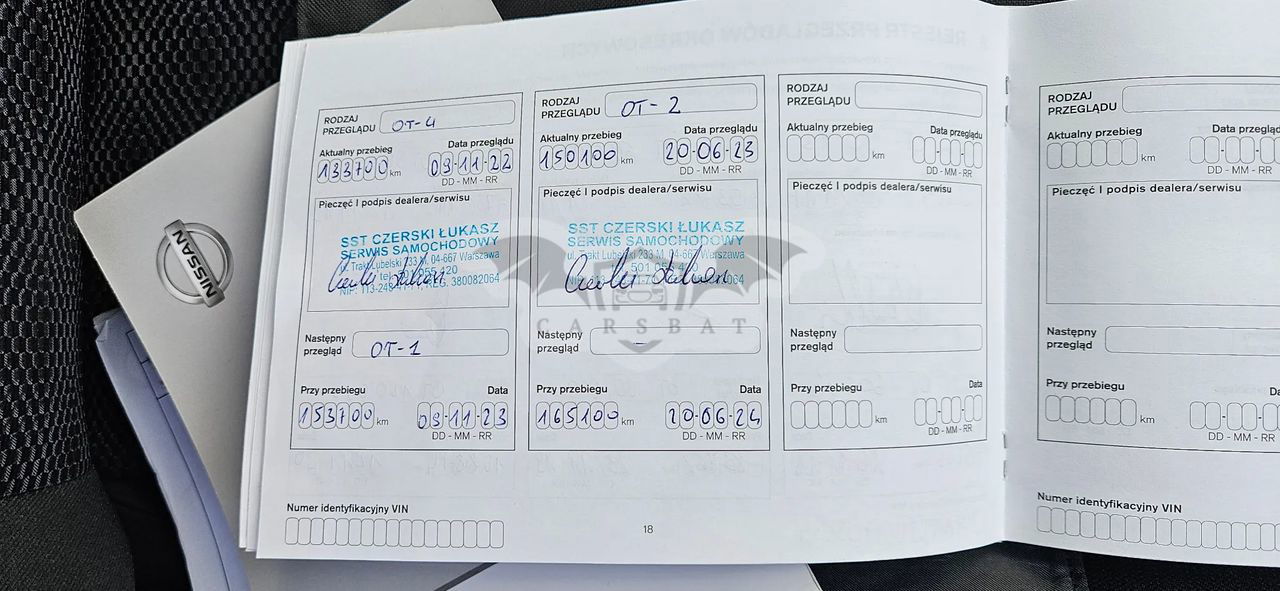 NISSAN
RODZAJ
PRZEGLĄDU OT-4
Aktualny przebieg Data przeglądu
133700 km 03-11-22
DD - MM - RR
Pieczęć I podpis dealera/serwisu
SST CZERSKI ŁUKASZ
SERWIS SAMOCHODOWY
ul. Trakt Lubelski 233 M, 04-667 Warszawa
Następny
przegląd OT-1
Przy przebiegu Data
153700 km 03-11-23
DD - MM - RR
RODZAJ
PRZEGLĄDU OT-2
Aktualny przebieg Data przeglądu
150100 km 20-06-23
DD - MM - RR
Pieczęć I podpis dealera/serwisu
SST CZERSKI ŁUKASZ
SERWIS SAMOCHODOWY
ul. Trakt Lubelski 233 M, 04-667 Warszawa
Następny
przegląd -
Przy przebiegu Data
165100 km 20-06-24
DD - MM - RR
RODZAJ
PRZEGLĄDU
Aktualny przebieg Data przeglądu
km
DD - MM - RR
Pieczęć I podpis dealera/serwisu
Następny
przegląd
Przy przebiegu Data
km
DD - MM - RR
RODZAJ
PRZEGLĄDU
Aktualny przebieg Data
km
DD - MM - RR
Pieczęć I podpis dealera/serwisu
Następny
przegląd
Przy przebiegu
km
DD - MM - RR
CARSBAT
Numer identyfikacyjny VIN
18
Numer identyfikacyjny VIN